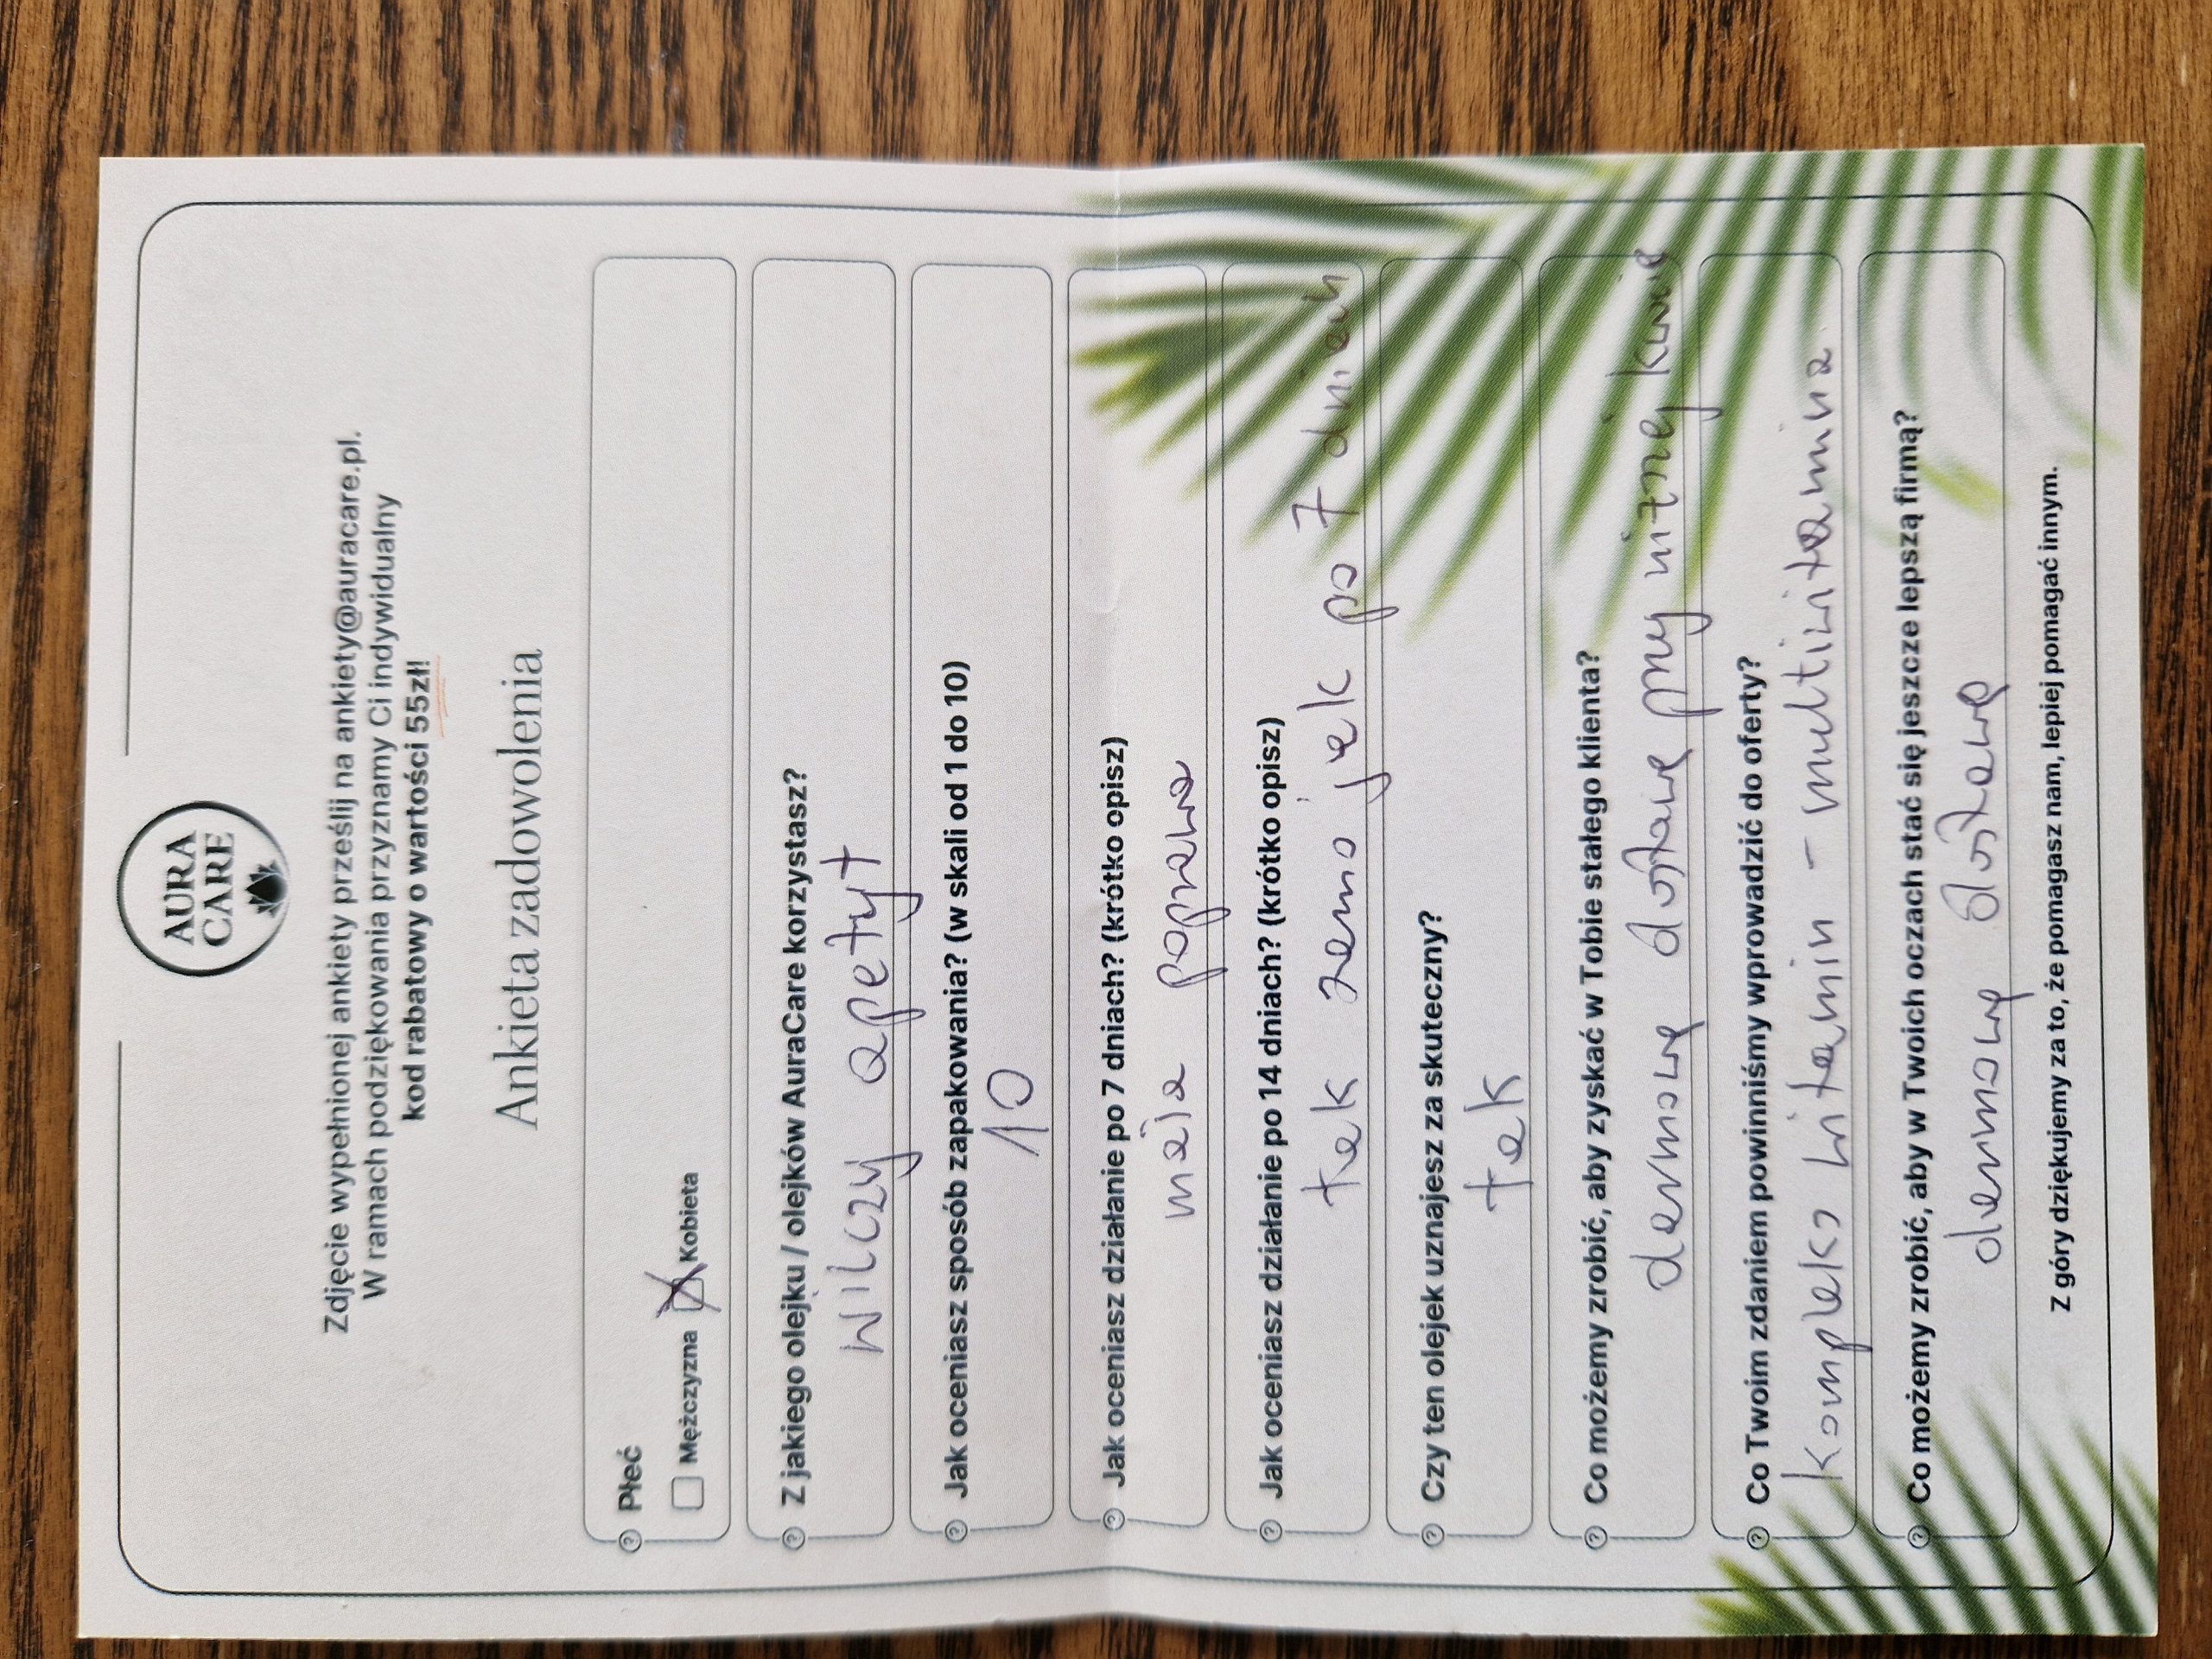 AURA
CARE
Zdjęcie wypełnionej ankiety prześlij na ankiety@auracare.pl.
W ramach podziękowania przyznamy Ci indywidualny
kod rabatowy o wartości 55zł!
Ankieta zadowolenia
Płeć
Mężczyzna Kobieta
Z jakiego olejku / olejków AuraCare korzystasz?
wilczy apetyt
Jak oceniasz sposób zapakowania? (w skali od 1 do 10)
10
Jak oceniasz działanie po 7 dniach? (krótko opisz)
mała poprawa
Jak oceniasz działanie po 14 dniach? (krótko opisz)
tak samo jak po 7 dniach
Czy ten olejek uznajesz za skuteczny?
tak
Co możemy zrobić, aby zyskać w Tobie stałego klienta?
darmową dostawę przy niższej kwocie
Co Twoim zdaniem powinniśmy wprowadzić do oferty?
kompleks witamin - multiwitamina
Co możemy zrobić, aby w Twoich oczach stać się jeszcze lepszą firmą?
darmową dostawę
Z góry dziękujemy za to, że pomagasz nam, lepiej pomagać innym.